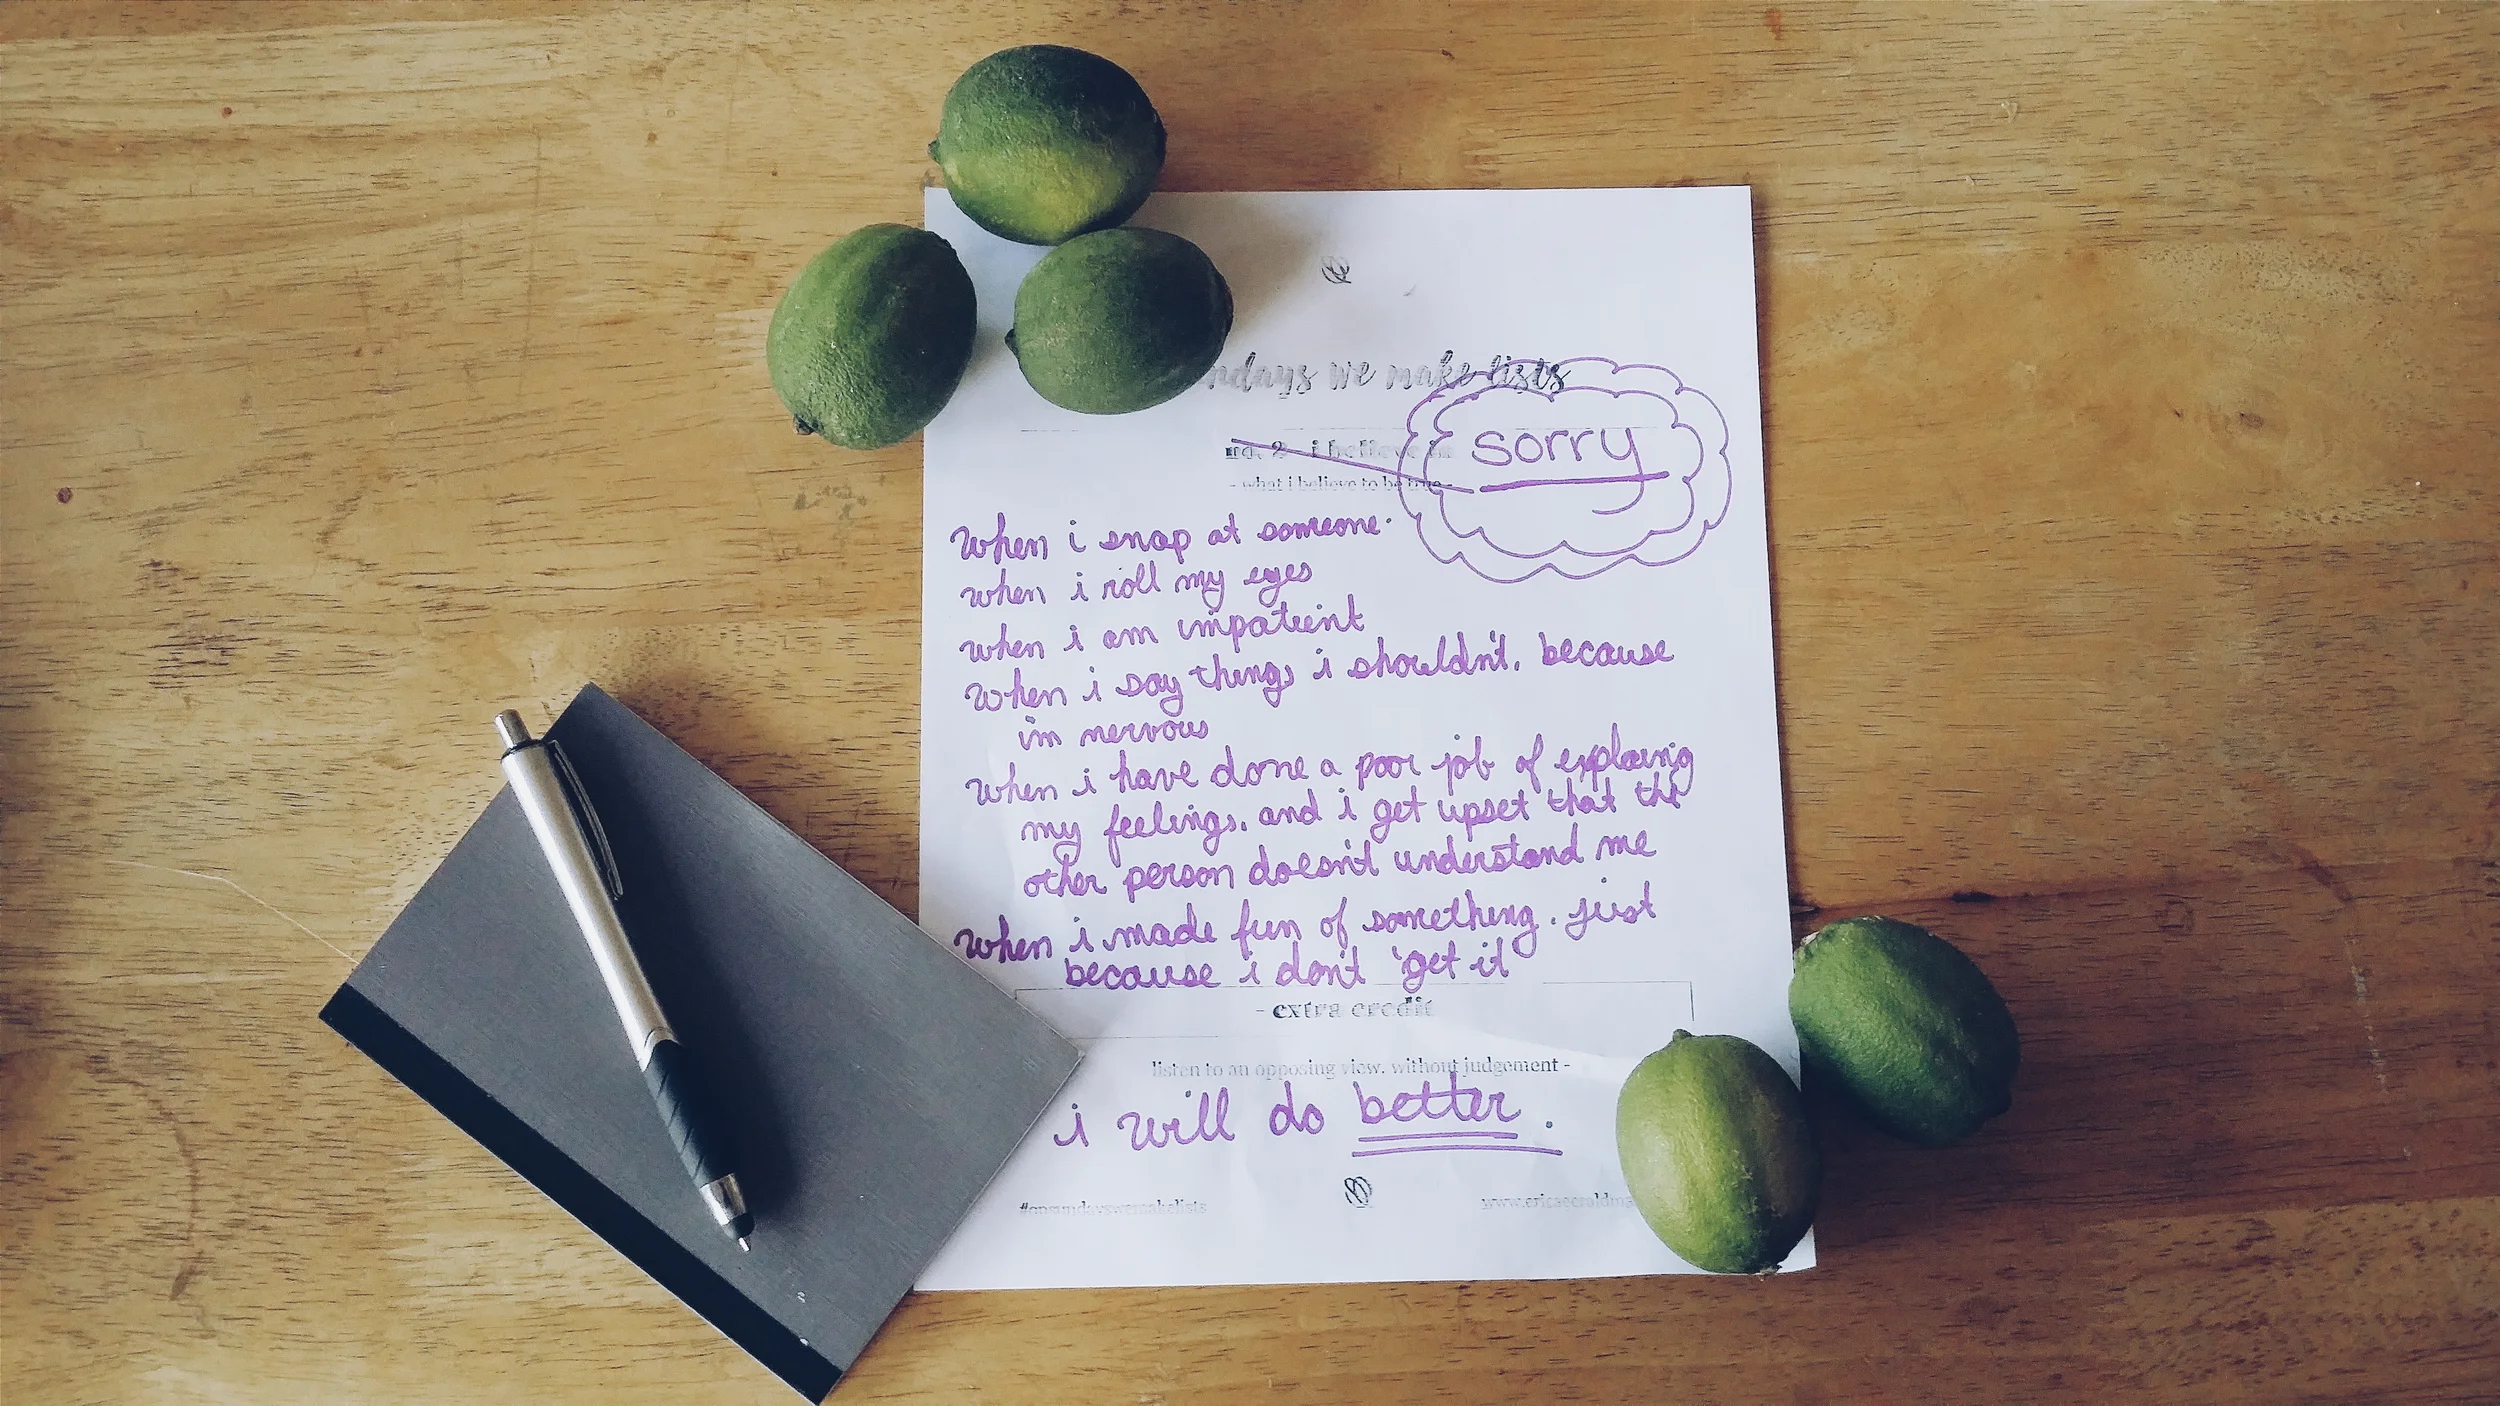 we make lists
no. 2 - i believe in
sorry
- what i believe to be true -
when i snap at someone.
when i roll my eyes
when i am impatient
when i say things i shouldn't. because
i'm nervous
when i have done a poor job of explaing
my feelings. and i get upset that the
other person doesn't understand me
when i made fun of something. just
because i don't 'get it'
- extra credit
listen to an opposing view. without judgement -
i will do better.
#onsundayswemakelists